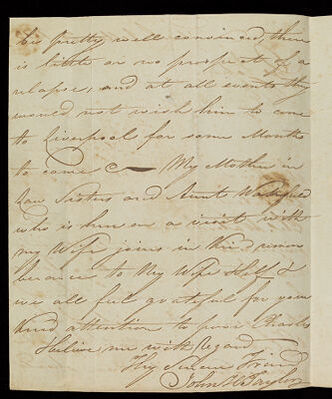 is pretty well convinced, there
is little or no prospect of a
relapse, and at all events they
would not wish him to come
to Liverpool for some Months
to come — My Mother in
Law Sisters and Aunt
who is here on a visit with
my Wife joins in Kind remem
berance to My Wife Self &
we all feel grateful for your
Kind attention to poor Charles
Believe me with Regard
Thy Sincere Friend
John Taylor